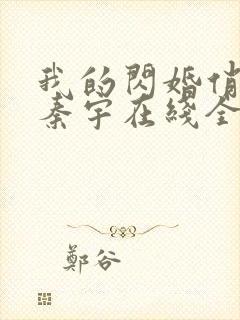 我的閃婚俏
秦宇在綫全
鄭谷